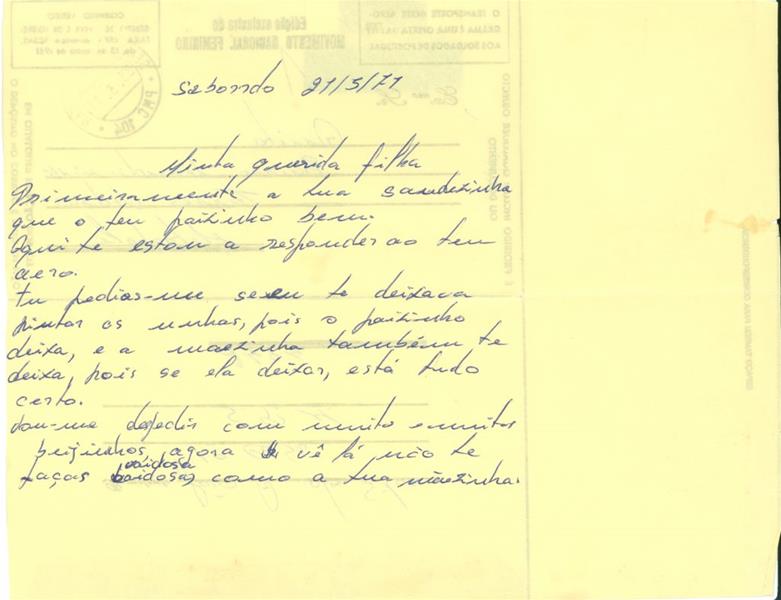 Sabordo 21/5/71
Minha querida filha
Primeiramente a tua saudezinha
que o teu paizinho bem.
Aqui te estou a responder ao teu
aero.
Tu pedias-me se eu te deixava
pintar as unhas, pois o paizinho
deixa, e a maezinha também te
deixa, pois se ela deixar, está tudo
certo.
Vou-me despedir com muito e muitos
beijinhos, agora vê lá não te
faças vaidosa como a tua mãezinha.
Edição exclusiva do
MOVIMENTO NACIONAL FEMININO
O TRANSPORTE DESTE AERO-
GRAMA É UMA OFERTA DA TAP
AOS SOLDADOS DE PORTUGAL